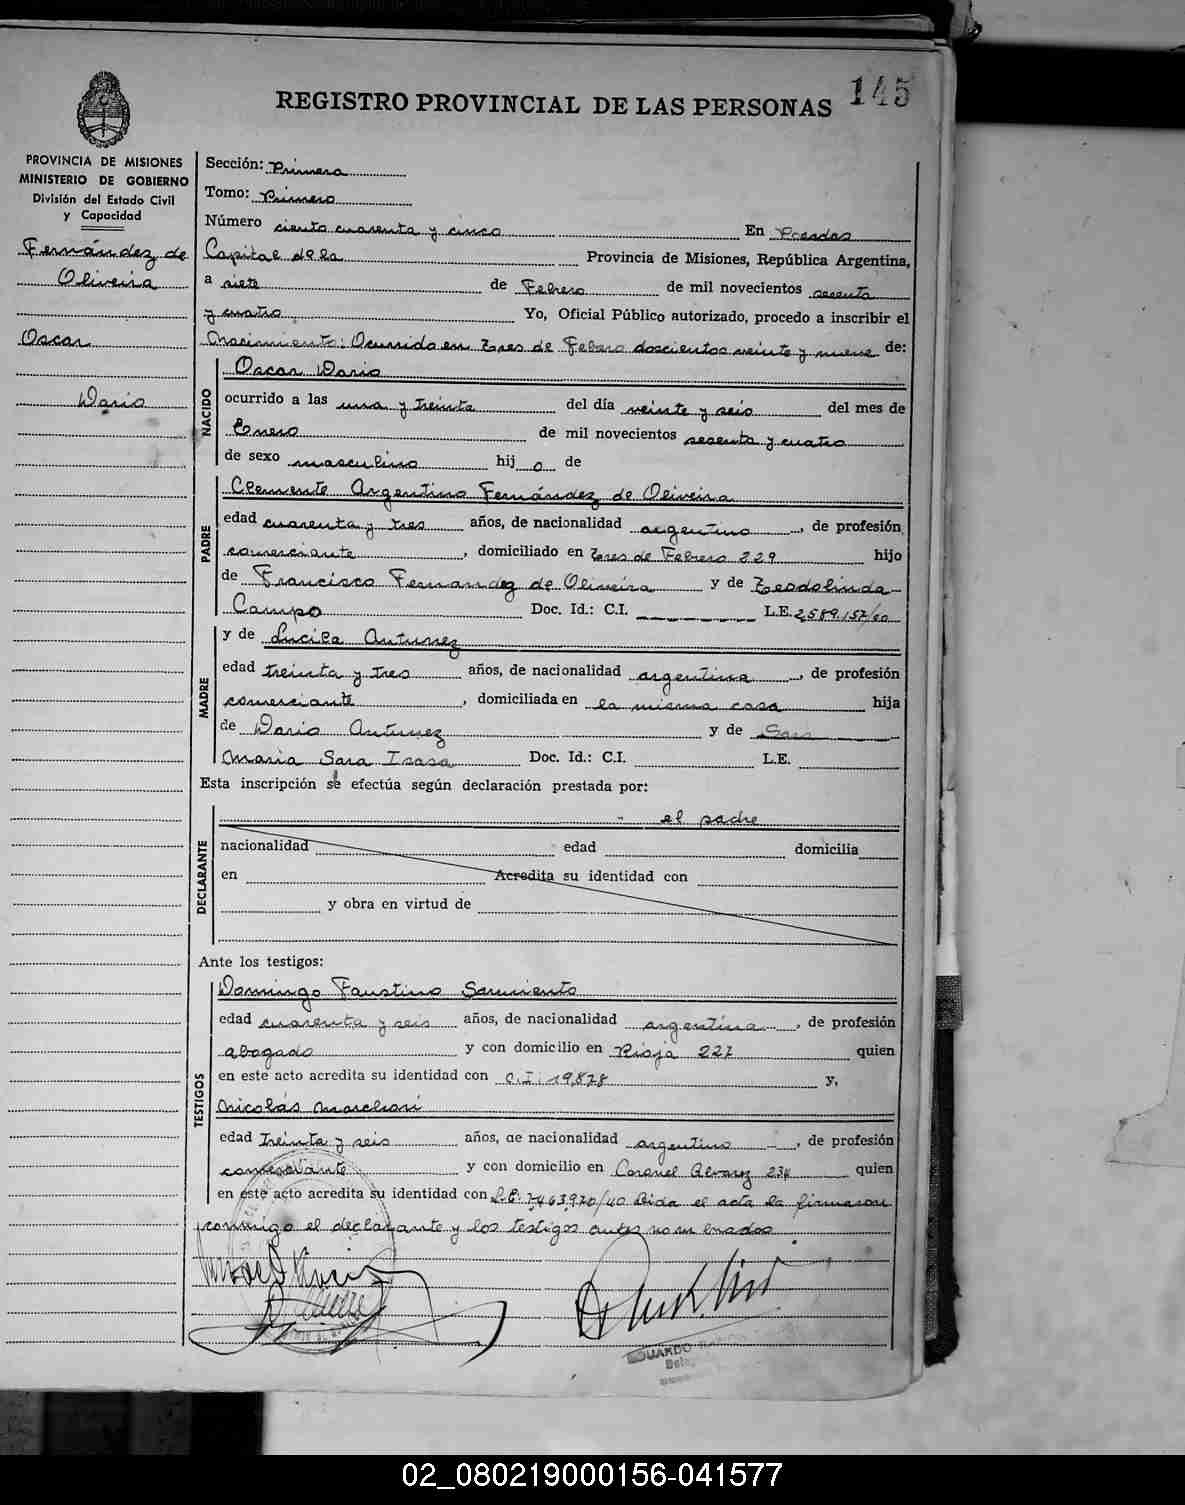 145
REGISTRO PROVINCIAL DE LAS PERSONAS
PROVINCIA DE MISIONES
MINISTERIO DE GOBIERNO
División del Estado Civil
y Capacidad
Fernández de
Oliveira
Oscar
Dario
Sección: Primera
Tomo: Primero
Número ciento cuarenta y cinco En Posadas
Capital de la Provincia de Misiones, República Argentina,
a siete de Febrero de mil novecientos sesenta
y cuatro Yo, Oficial Público autorizado, procedo a inscribir el
Nacimiento: Ocurrido en Tres de Febrero doscientos veinte y nueve de:
NACIDO
Oscar Dario
ocurrido a las una y treinta del día veinte y seis del mes de
Enero de mil novecientos sesenta y cuatro
de sexo masculino hij o de
PADRE
Clemente Argentino Fernández de Oliveira
edad cuarenta y tres años, de nacionalidad argentino, de profesión
comerciante, domiciliado en Tres de Febrero 229 hijo
de Francisco Fernandez de Oliveira y de Teodolinda
Campo Doc. Id.: C.I. L.E. 2.589.157/00
MADRE
y de Lucila Antunez
edad treinta y tres años, de nacionalidad argentina, de profesión
comerciante, domiciliada en la misma casa hija
de Dario Antunez y de Sara
Maria Sara Isasa Doc. Id.: C.I. L.E.
Esta inscripción se efectúa según declaración prestada por:
DECLARANTE
el padre
nacionalidad edad domicilia
en Acredita su identidad con
y obra en virtud de
Ante los testigos:
TESTIGOS
Domingo Faustino Sarmiento
edad cuarenta y seis años, de nacionalidad argentina, de profesión
abogado y con domicilio en Rioja 227 quien
en este acto acredita su identidad con C.I. 19.878 y,
Nicolás Marchiori
edad treinta y seis años, de nacionalidad argentino, de profesión
comerciante y con domicilio en Coronel Alvarez 234 quien
en este acto acredita su identidad con L.E. 7.463.970/40 Leida el acta la firmaron
conmigo el declarante y los testigos antes nombrados
EDUARDO
02_080219000156-041577